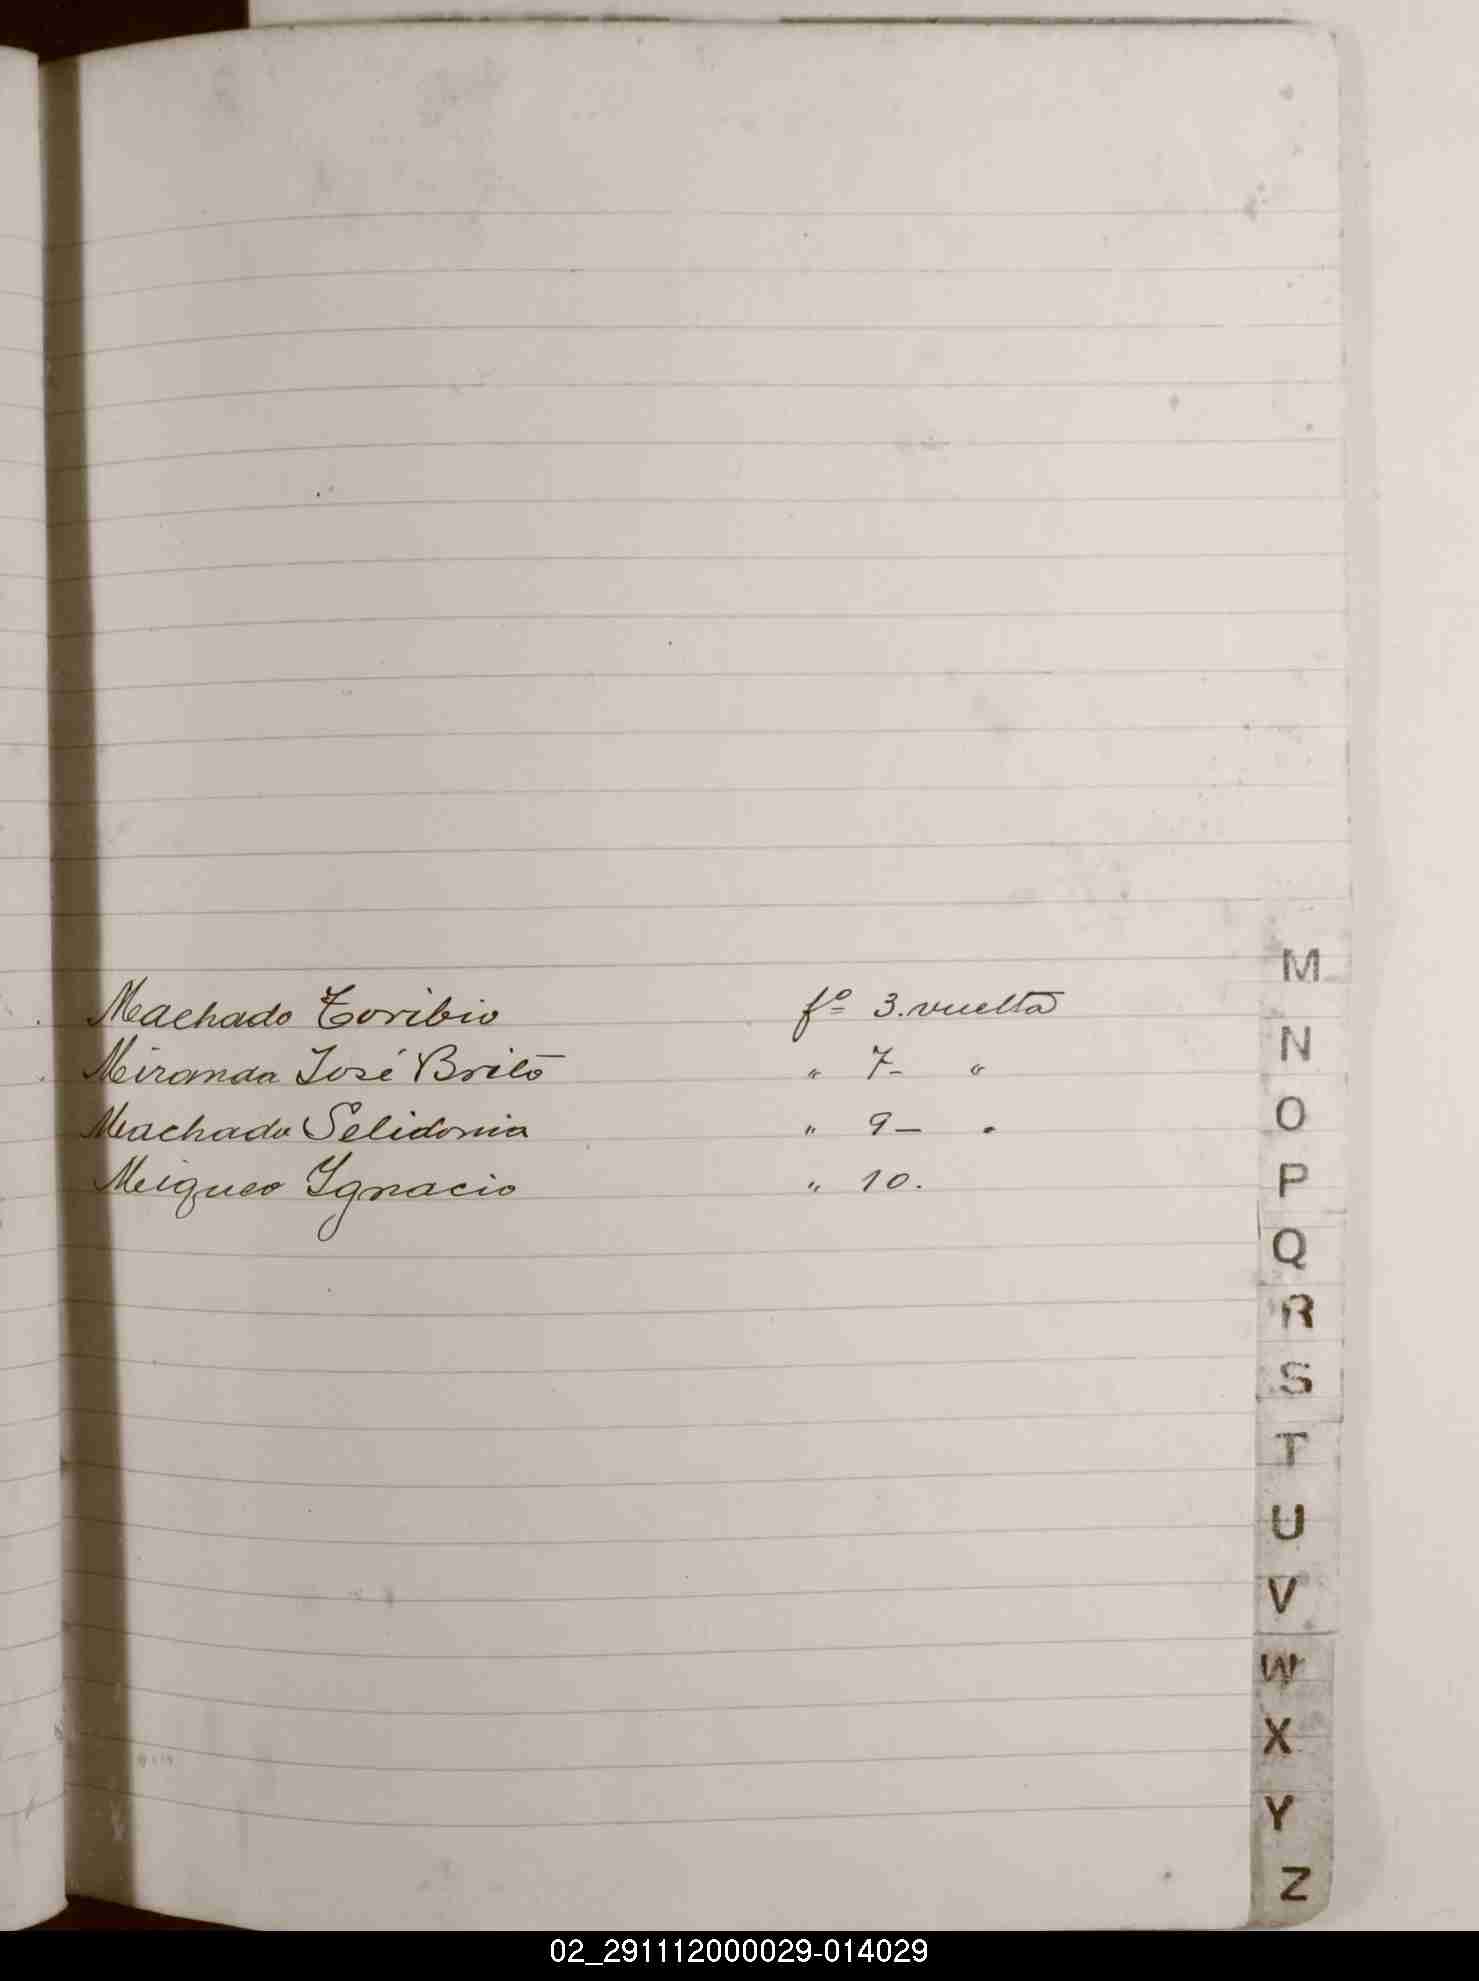 Machado Toribio fº 3. vuelta
Miranda José Brito " 7- "
Machado Selidonia " 9- "
Meigueo Ygnacio " 10.
M
N
O
P
Q
R
S
T
U
V
W
X
Y
Z
02_291112000029-014029